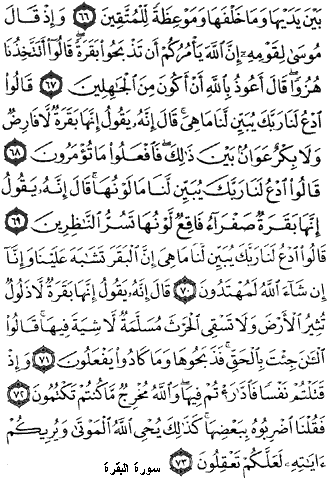 بَيْنَ يَدَيْهَا وَمَا خَلْفَهَا وَمَوْعِظَةً لِّلْمُتَّقِينَ ﴿٦٦﴾ وَإِذْ قَالَ
مُوسَىٰ لِقَوْمِهِۦٓ إِنَّ ٱللَّهَ يَأْمُرُكُمْ أَن تَذْبَحُوا۟ بَقَرَةً ۖ قَالُوٓا۟ أَتَتَّخِذُنَا
هُزُوًا ۖ قَالَ أَعُوذُ بِٱللَّهِ أَنْ أَكُونَ مِنَ ٱلْجَٰهِلِينَ ﴿٦٧﴾ قَالُوا۟
ٱدْعُ لَنَا رَبَّكَ يُبَيِّن لَّنَا مَا هِىَ ۚ قَالَ إِنَّهُۥ يَقُولُ إِنَّهَا بَقَرَةٌ لَّا فَارِضٌ
وَلَا بِكْرٌ عَوَانٌۢ بَيْنَ ذَٰلِكَ ۖ فَٱفْعَلُوا۟ مَا تُؤْمَرُونَ ﴿٦٨﴾
قَالُوا۟ ٱدْعُ لَنَا رَبَّكَ يُبَيِّن لَّنَا مَا لَوْنُهَا ۚ قَالَ إِنَّهُۥ يَقُولُ
إِنَّهَا بَقَرَةٌ صَفْرَآءُ فَاقِعٌ لَّوْنُهَا تَسُرُّ ٱلنَّٰظِرِينَ ﴿٦٩﴾
قَالُوا۟ ٱدْعُ لَنَا رَبَّكَ يُبَيِّن لَّنَا مَا هِىَ إِنَّ ٱلْبَقَرَ تَشَٰبَهَ عَلَيْنَا وَإِنَّآ
إِن شَآءَ ٱللَّهُ لَمُهْتَدُونَ ﴿٧٠﴾ قَالَ إِنَّهُۥ يَقُولُ إِنَّهَا بَقَرَةٌ لَّا ذَلُولٌ
تُثِيرُ ٱلْأَرْضَ وَلَا تَسْقِى ٱلْحَرْثَ مُسَلَّمَةٌ لَّا شِيَةَ فِيهَا ۚ قَالُوا۟
ٱلْـَٰٔنَ جِئْتَ بِٱلْحَقِّ ۚ فَذَبَحُوهَا وَمَا كَادُوا۟ يَفْعَلُونَ ﴿٧١﴾ وَإِذْ
قَتَلْتُمْ نَفْسًا فَٱدَّٰرَْٰٔتُمْ فِيهَا ۖ وَٱللَّهُ مُخْرِجٌ مَّا كُنتُمْ تَكْتُمُونَ ﴿٧٢﴾
فَقُلْنَا ٱضْرِبُوهُ بِبَعْضِهَا ۚ كَذَٰلِكَ يُحْىِ ٱللَّهُ ٱلْمَوْتَىٰ وَيُرِيكُمْ
ءَايَٰتِهِۦ لَعَلَّكُمْ تَعْقِلُونَ ﴿٧٣﴾ سورة البقرة